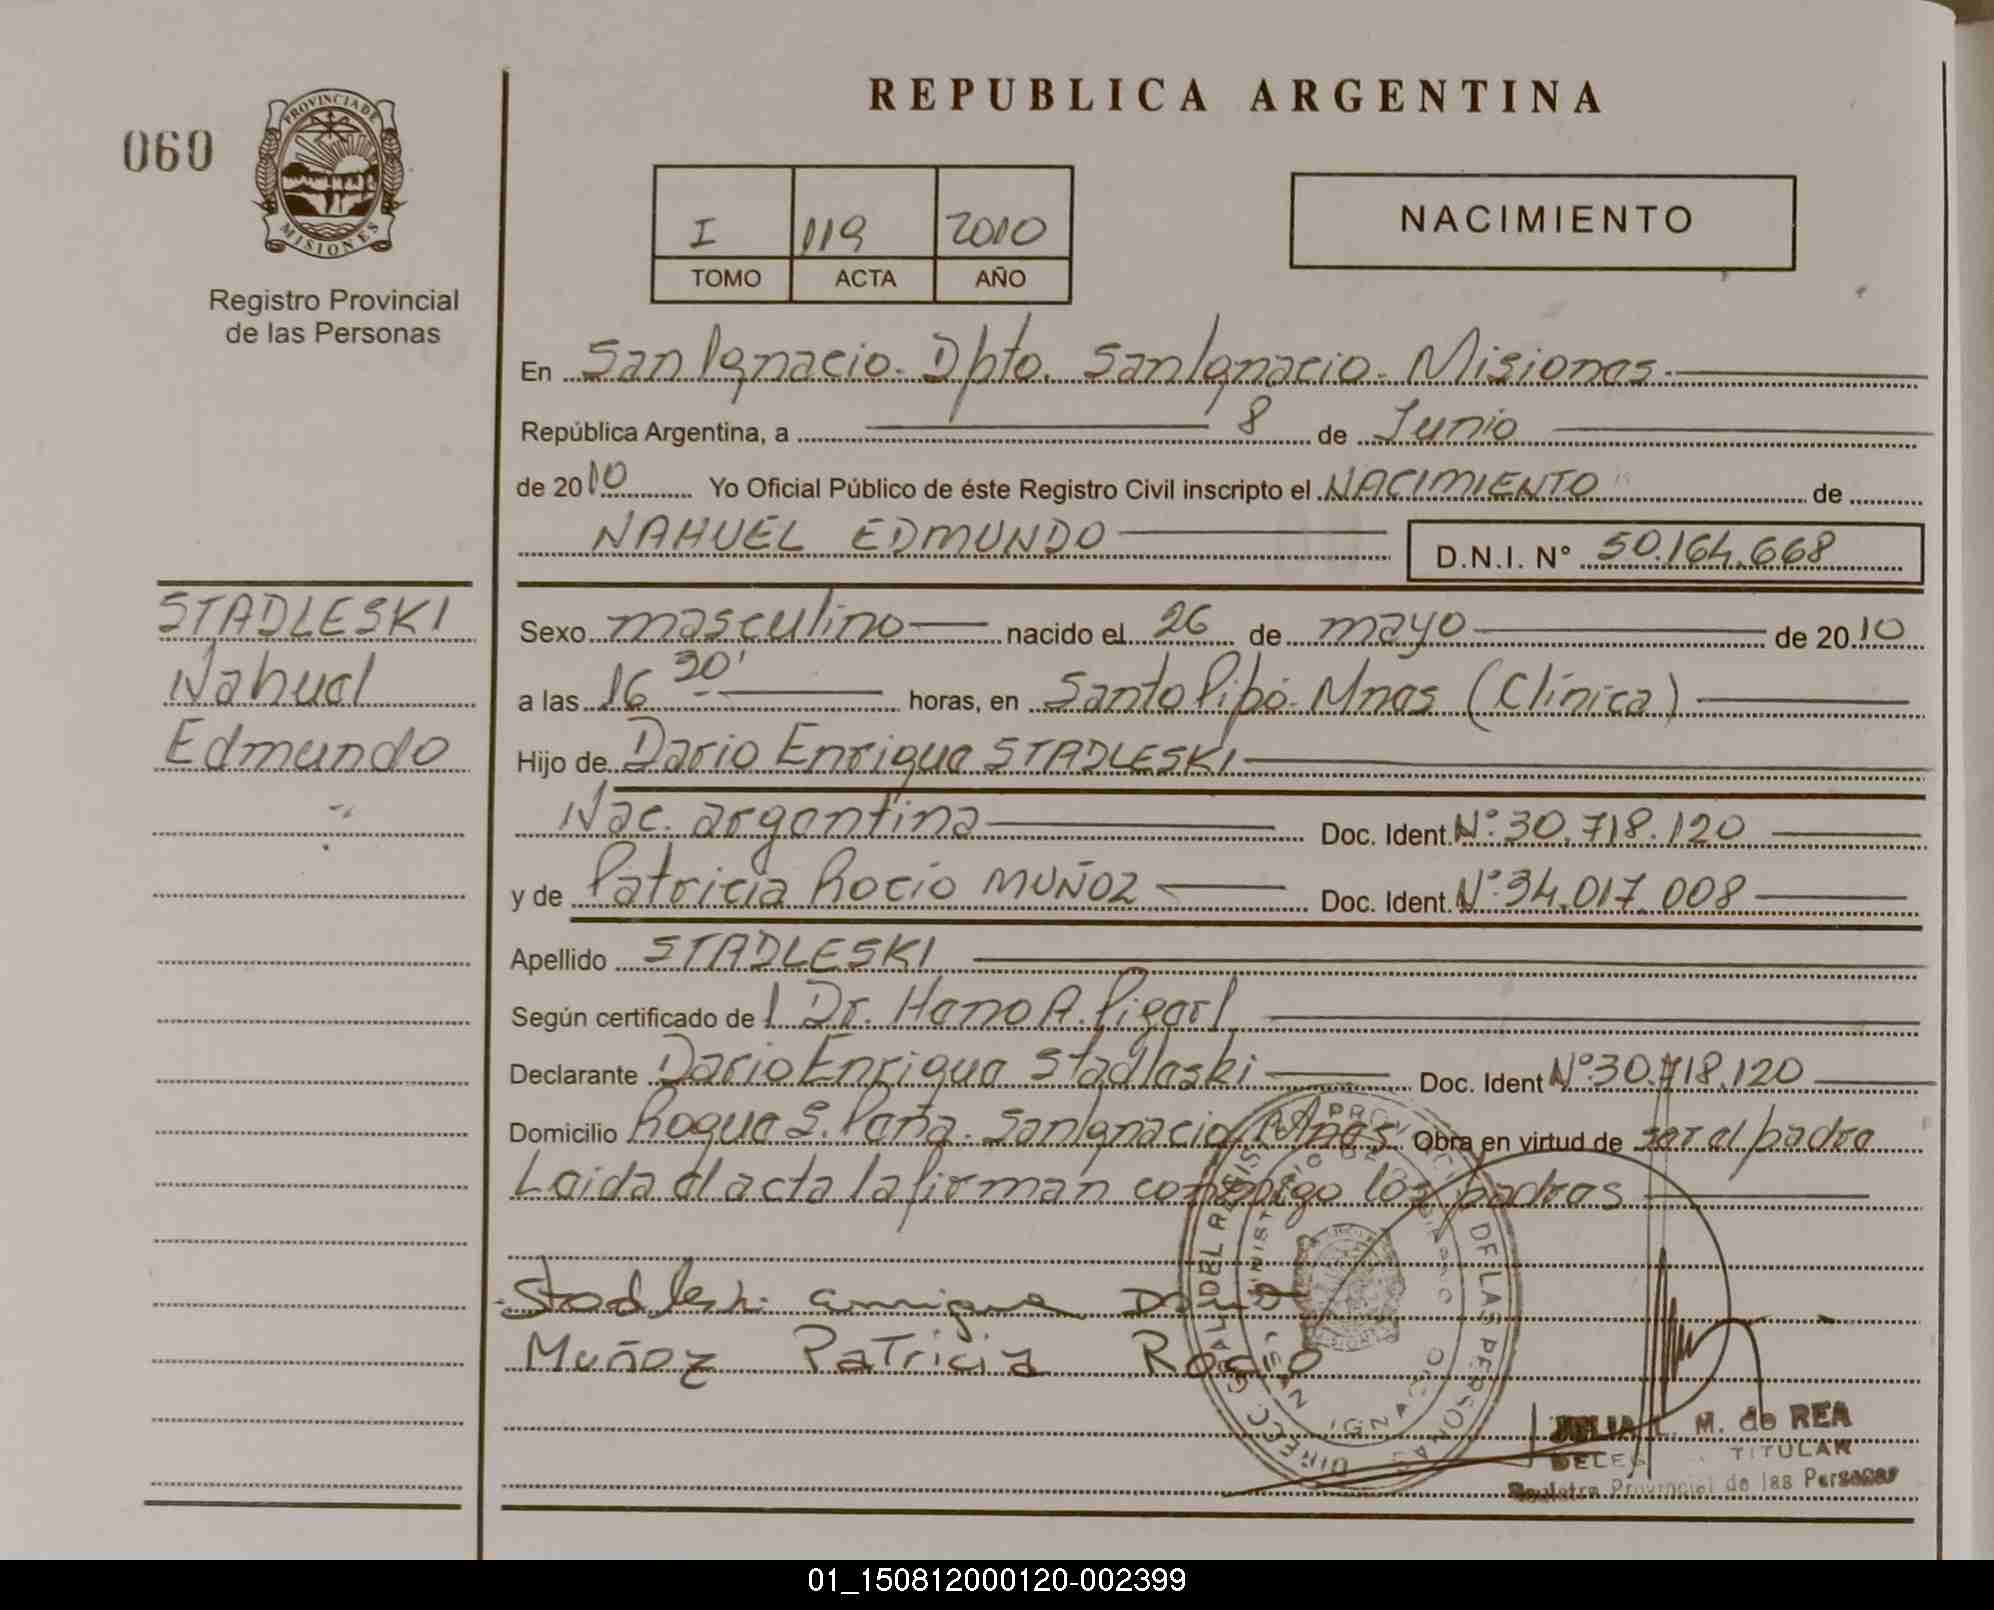 REPUBLICA ARGENTINA
060
PROVINCIA DE
MISIONES
Registro Provincial
de las Personas
I 119 2010
TOMO ACTA AÑO
NACIMIENTO
En San Ignacio. Dpto. San Ignacio. Misiones.
República Argentina, a 8 de Junio
de 2010 Yo Oficial Público de éste Registro Civil inscripto el NACIMIENTO de
NAHUEL EDMUNDO D.N.I. N° 50.164.668
STADLESKI
Nahuel
Edmundo
Sexo masculino nacido el 26 de mayo de 2010
a las 16 30' horas, en Santo Pipó. Mnes (Clínica)
Hijo de Dario Enrique STADLESKI
Nac. argentina Doc. Ident. N°: 30.718.120
y de Patricia Rocio MUÑOZ Doc. Ident. N°: 34.017.008
Apellido STADLESKI
Según certificado del Dr. A.
Declarante Dario Enrique Stadleski Doc. Ident N° 30.718.120
Domicilio Roque S. Peña. San Ignacio Mnes. Obra en virtud de ser el padre
Leida el acta la firman conmigo los padres
Enrique Dario
Muñoz Patricia Rocio
DIRECC GRAL DEL REGIST PROV DE LAS PERSONAS
JULIA L. M. de REA
TITULAR
Registro Provincial de las Personas
01_150812000120-002399